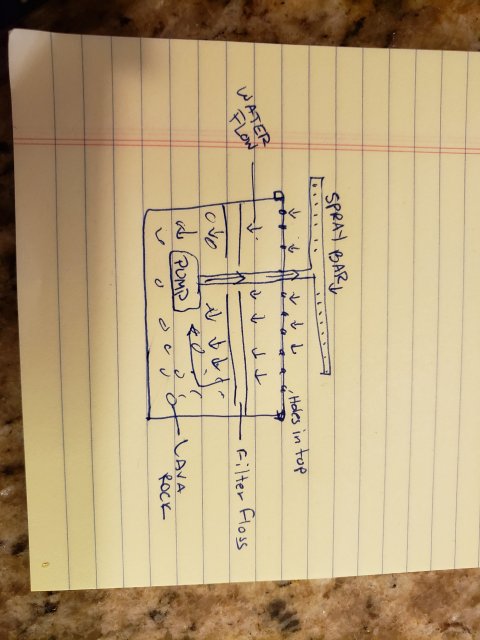 SPRAY BAR
WATER
FLOW
Holes in top
PUMP
Filter Floss
LAVA
ROCK